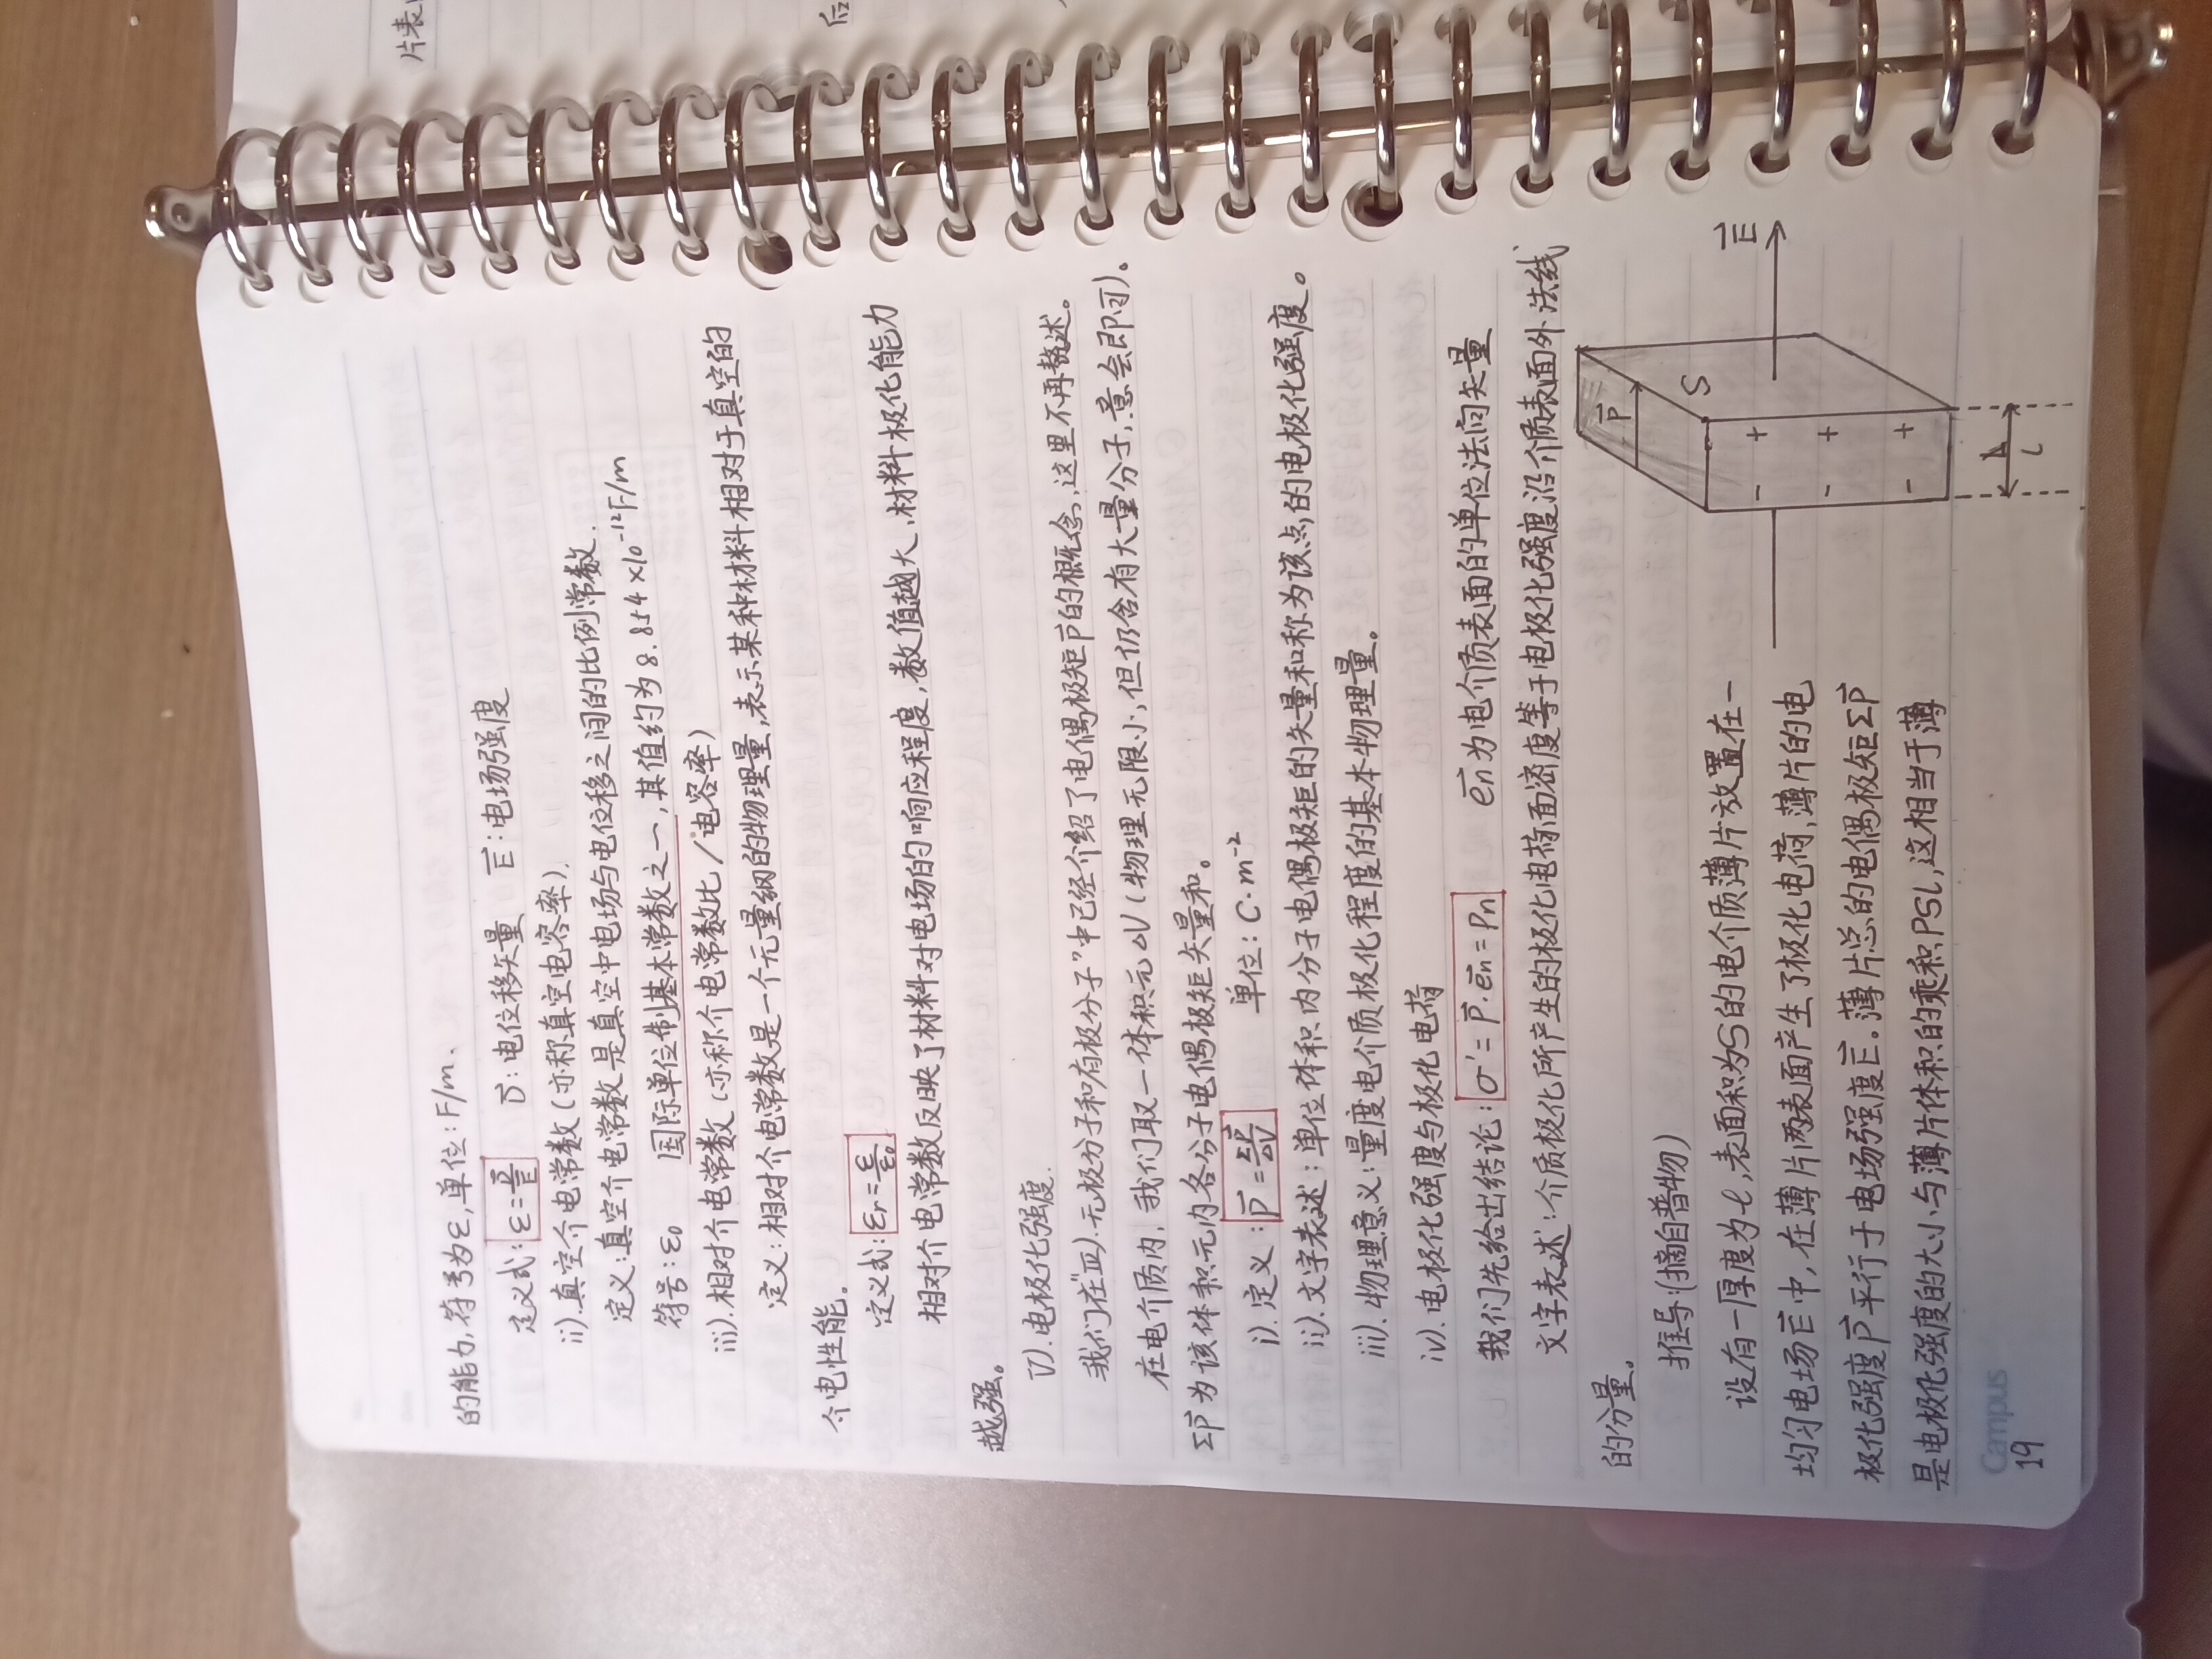 片表
后
的能力,符号为ε,单位:F/m.
定义式:ε=D/E D:电位移矢量 E:电场强度
ii).真空介电常数(亦称真空电容率).
定义:真空介电常数是真空中电场与电位移之间的比例常数.
符号:ε₀ 国际单位制基本常数之一,其值约为8.854×10⁻¹²F/m
iii).相对介电常数(亦称介电常数比/电容率)
定义:相对介电常数是一个无量纲的物理量,表示某种材料相对于真空的
介电性能。
定义式:εr=ε/ε₀
相对介电常数反映了材料对电场的响应程度,数值越大,材料极化能力
越强。
V).电极化强度.
我们在"Ⅲ).无极分子和有极分子"中已经介绍了电偶极矩p⃗的概念,这里不再整述。
在电介质内,我们取一体积元△V(物理无限小,但仍含有大量分子,意会即可)。
Σp⃗为该体积元内各分子电偶极矩矢量和。
i).定义:P⃗=Σp⃗/△V 单位:C·m⁻²
ii).文字表述:单位体积内分子电偶极矩的矢量和称为该点的电极化强度。
iii).物理意义:量度电介质极化程度的基本物理量。
iv).电极化强度与极化电荷
我们先给出结论:σ'=P⃗·e⃗n=Pn e⃗n为电介质表面的单位法向矢量
文字表述:介质极化所产生的极化电荷面密度等于电极化强度沿介质表面外法线
的分量。
推导:(摘自普物)
设有一厚度为ℓ,表面积为S的电介质薄片放置在一
均匀电场E⃗中,在薄片两表面产生了极化电荷,薄片的电
极化强度P⃗平行于电场强度E⃗。薄片总的电偶极矩Σp⃗
是电极化强度的大小与薄片体积的乘积PSl,这相当于薄
P⃗
S
E⃗
- +
- +
- +
l
Campus
19